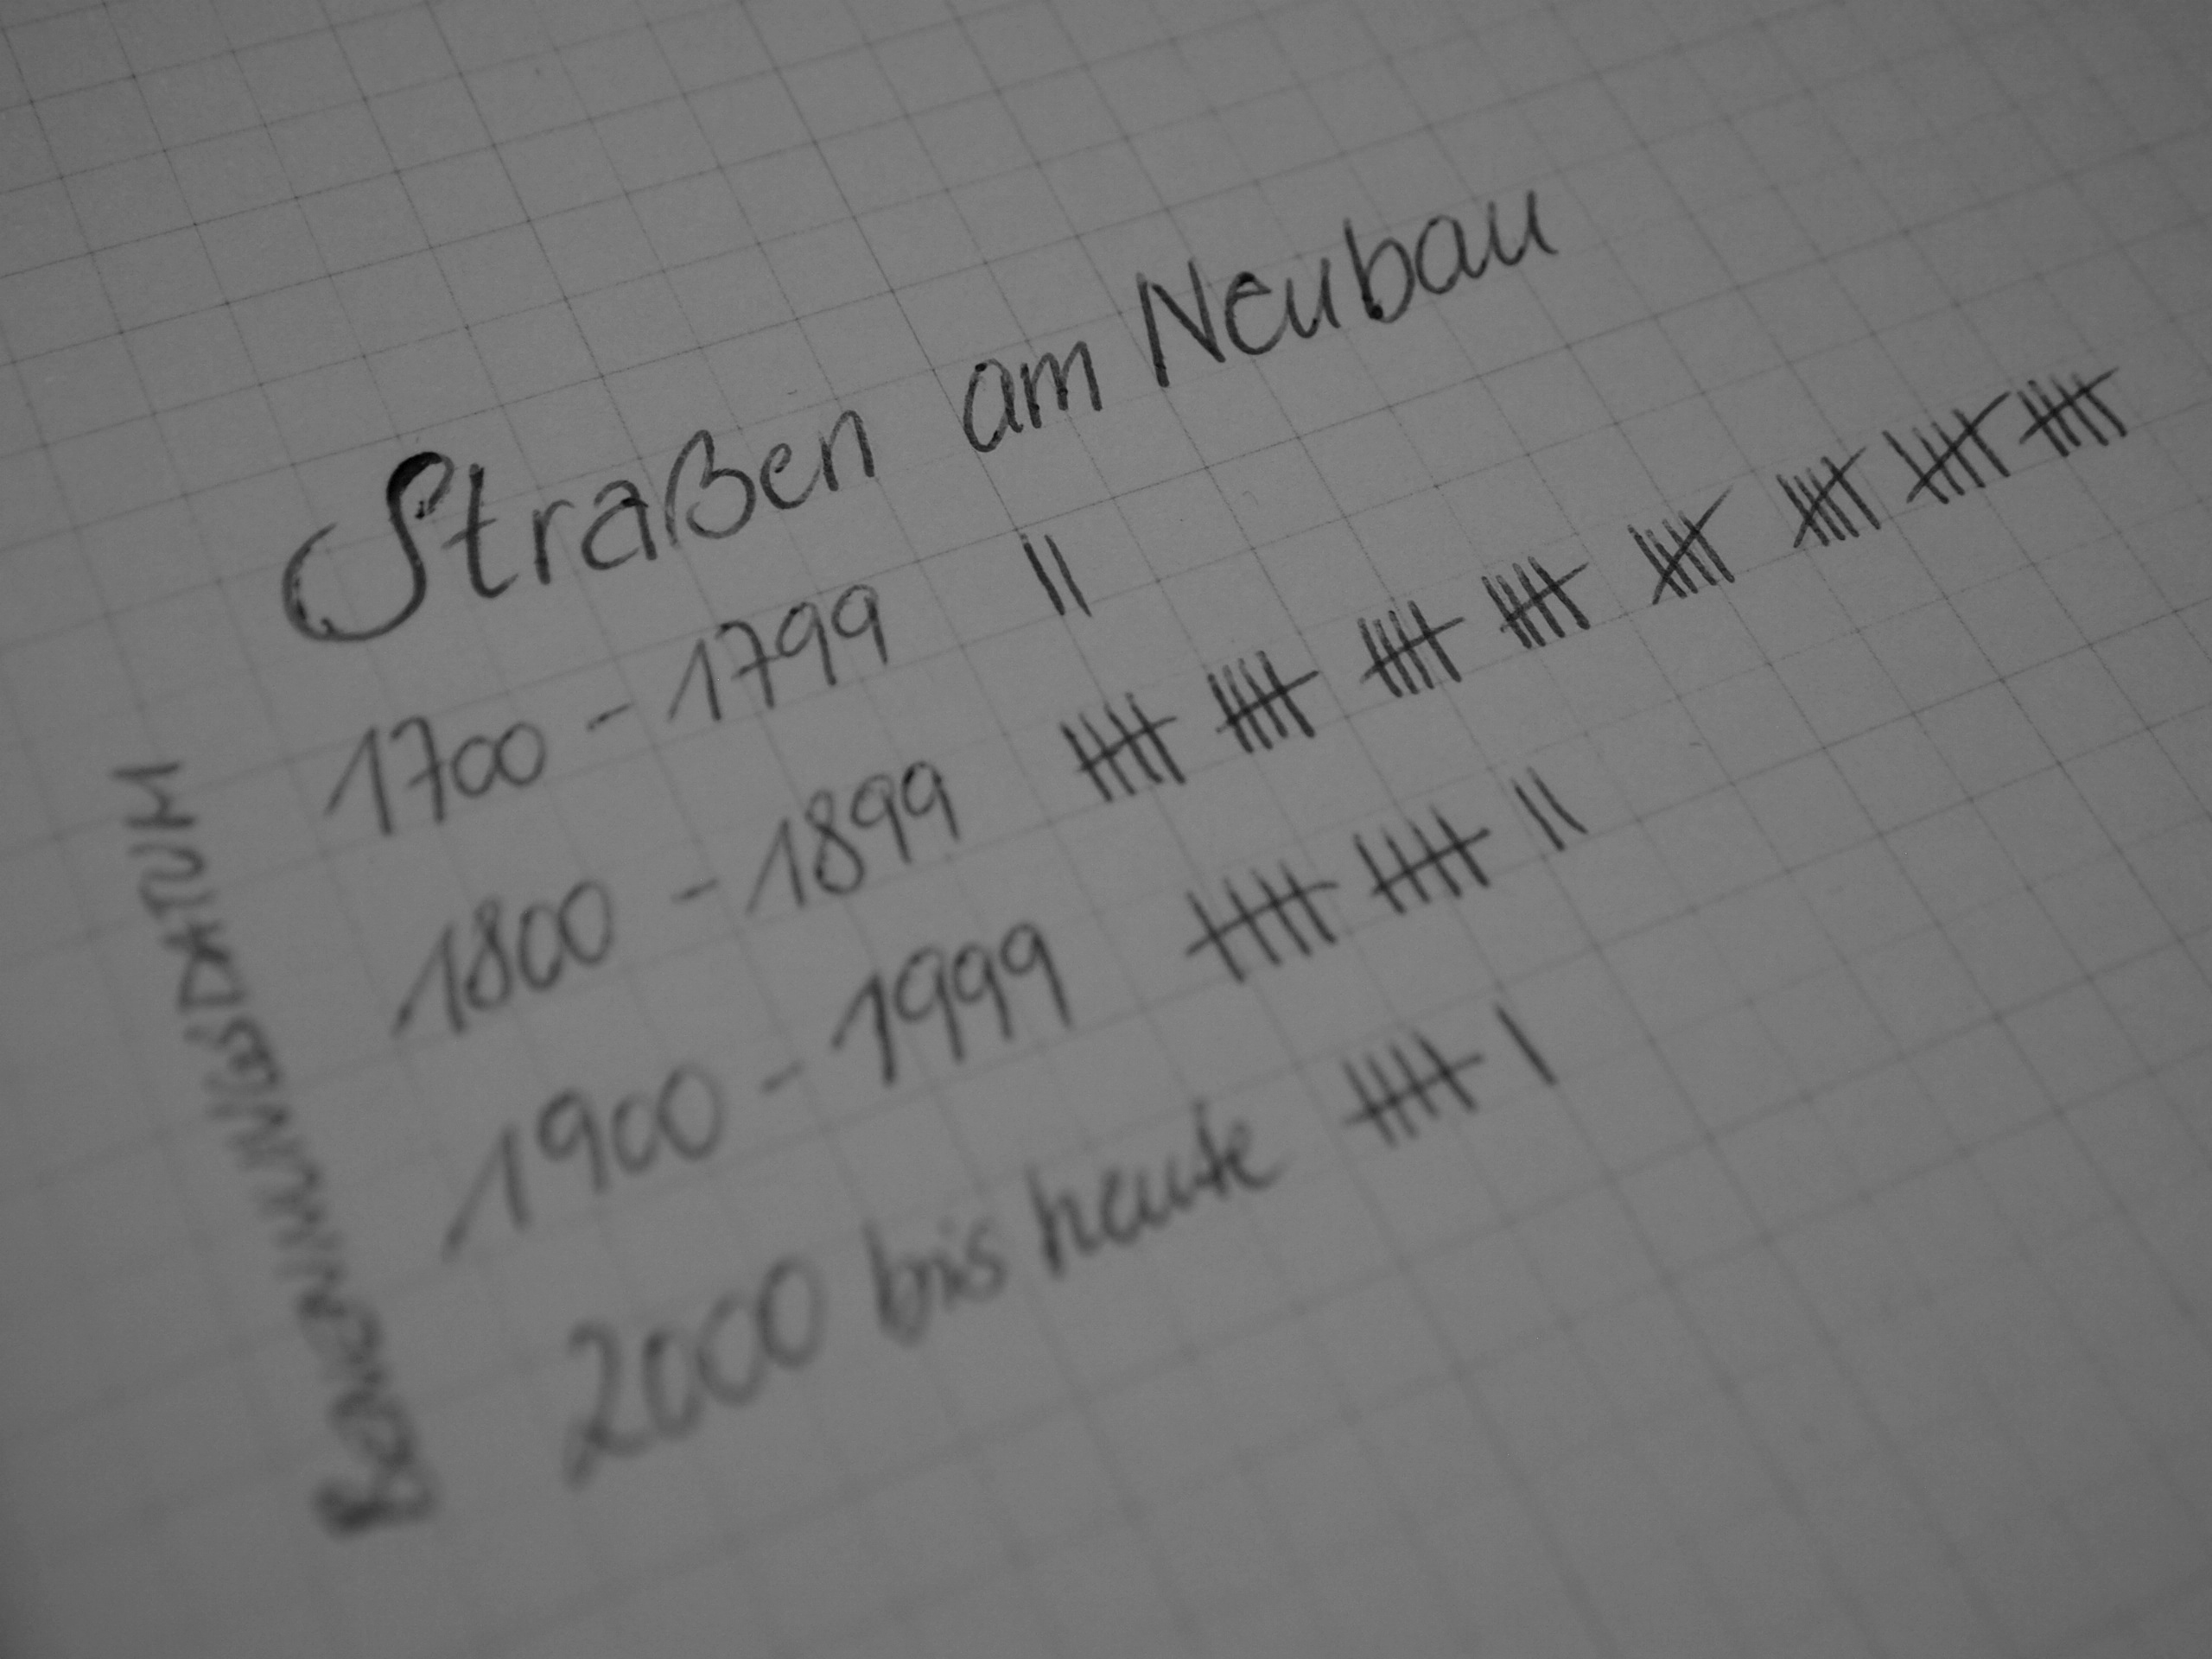 Straßen am Neubau
1700 - 1799 ||
1800 - 1899 𝍸 𝍸 𝍸 𝍸 𝍸 𝍸 𝍸 𝍸
1900 - 1999 𝍸 𝍸 ||
2000 bis heute 𝍸 |
BENENNUNGSDATUM